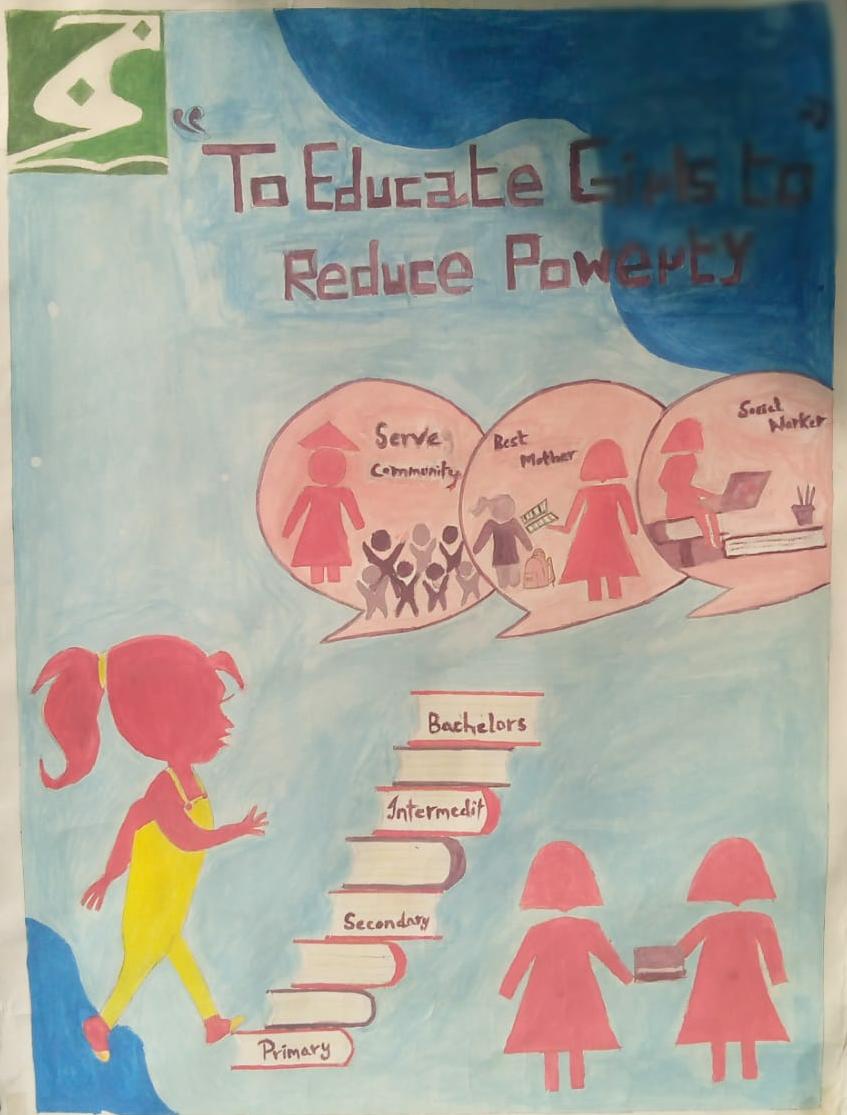 "To Educate Girls to"
Reduce Powerty
Serve
Community
Best
Mother
Social
Worker
Bachelors
Intermedit
Secondary
Primary